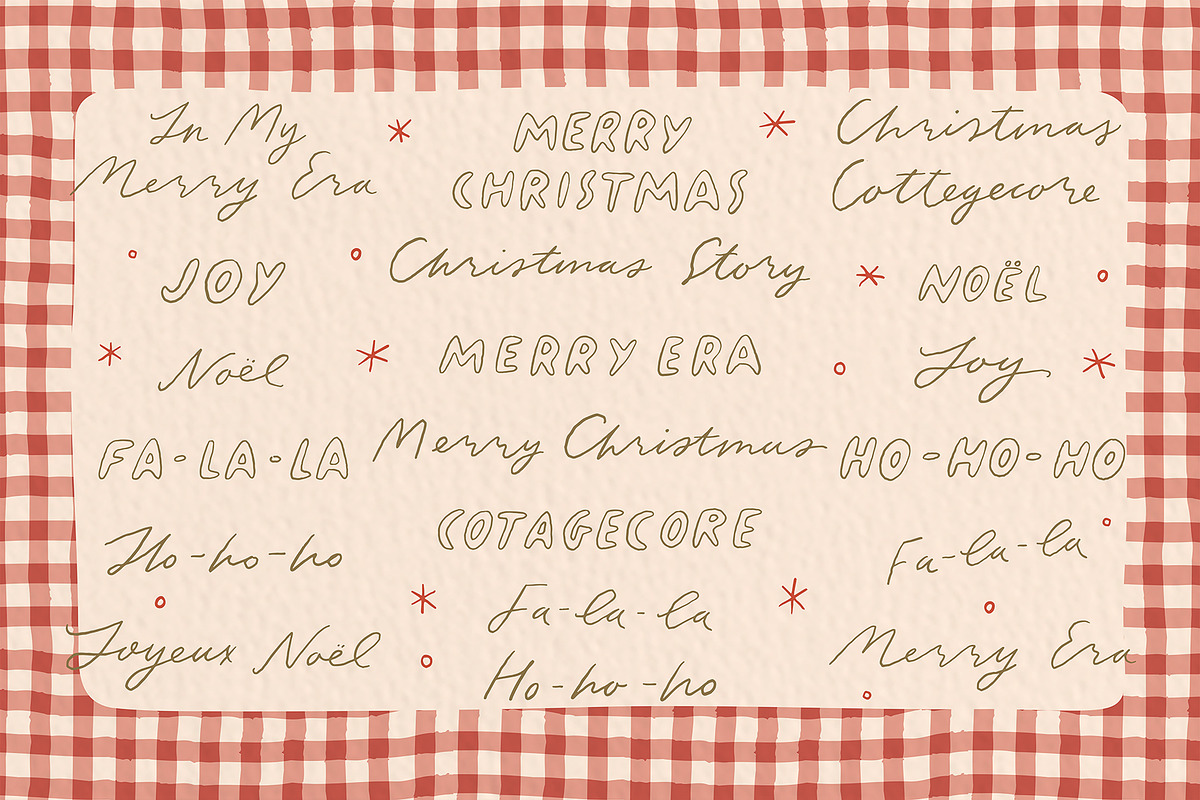 In My
Merry Era
MERRY
CHRISTMAS
Christmas
Cottegecore
JOY
Christmas Story
NOËL
Noël
MERRY ERA
Joy
FA-LA-LA
Merry Christmas
HO-HO-HO
Ho-ho-ho
COTAGECORE
Fa-la-la
Joyeux Noël
Fa-la-la
Ho-ho-ho
Merry Era